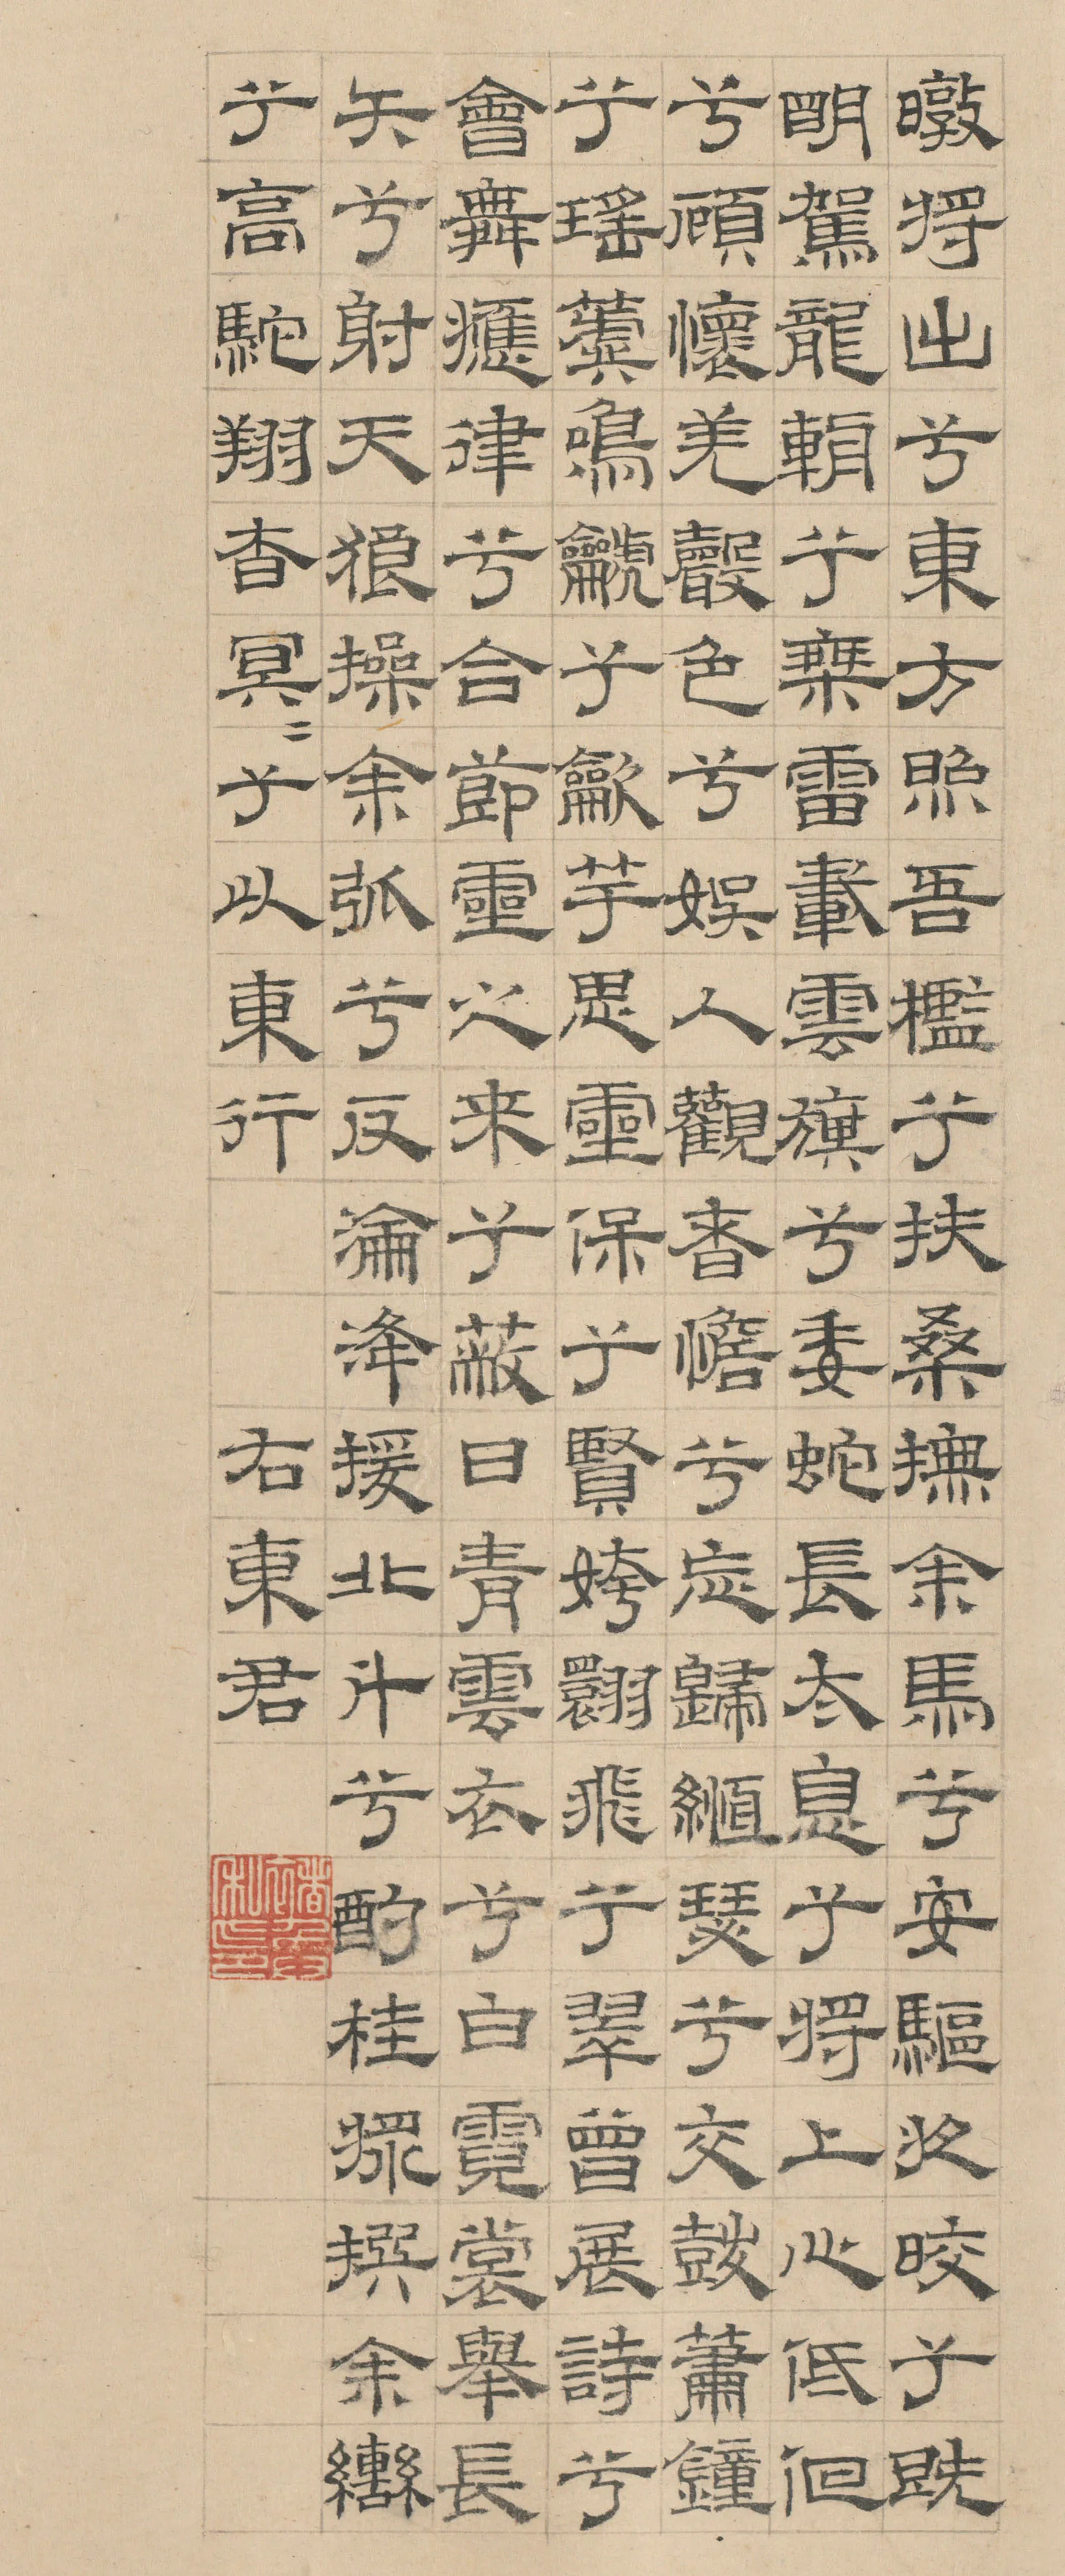 暾将出兮東方照吾檻兮扶桑撫余馬兮安驅夜皎兮既
明駕龍輈兮乘雷載雲旗兮委蛇長太息兮将上心低佪
兮顧懷羌聲色兮娱人觀者憺兮忘歸縆瑟兮交鼓簫鐘
兮瑶簴鳴鷈兮龡竽思靈保兮賢姱翾飛兮翠曾展詩兮
會舞應律兮合節靈之来兮蔽日青雲衣兮白霓裳舉長
矢兮射天狼操余弧兮反淪降援北斗兮酌桂漿撰余轡
兮高駝翔杳冥二兮以東行 右東君